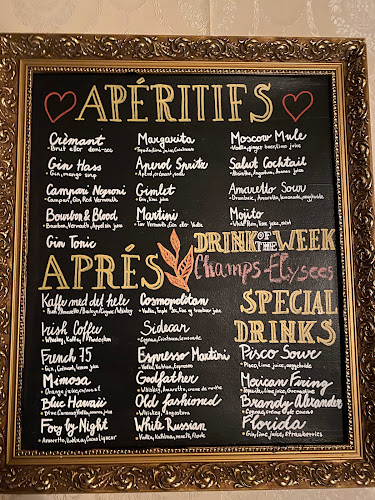 APÉRITIFS
Crèmant
• Brut eller demi-sec
Gin Hass
• Gin, mango sirup
Campari Negroni
• Campari, Gin, Red Vermouth
Bourbon & Blood
• Bourbon, Vermouth, Appelsin juice
Gin Tonic
Margarita
• Tequila, lime juice, Cointreau
Aperol Spritz
• Aperol, crèmant, soda
Gimlet
• Gin, lime juice
Martini
• Tør Vermouth, Gin eller Vodka
Moscow Mule
• Vodka, ginger beer, lime juice
Salut Cocktail
Amaretto Sour
• Amaretto, lemonade, eggwhite
Mojito
• White Rum, lime juice, mint
DRINK OF THE WEEK
Champs-Elysees
APRÉS
Kaffe med det hele
Irish Coffee
• Whiskey, Kaffe,
French 75
• Gin, Crèmant, lemon juice
Mimosa
• Orange juice, crèmant
Blue Hawaii
Fog by Night
Cosmopolitan
Sidecar
• Cognac, Cointreau, lemonade
Espresso Martini
• Vodka, Kahlua, Espresso
Godfather
• Whiskey, Amaretto,
Old fashioned
• Whiskey, Angostura
White Russian
• Vodka, Kahlua, mælk, fløde
SPECIAL
DRINKS
Pisco Sour
• Pisco, lime juice, eggwhite
Mexican Firing
Brandy Alexander
• Cognac, creme de cacao
Florida
• Gin, lime juice, strawberries